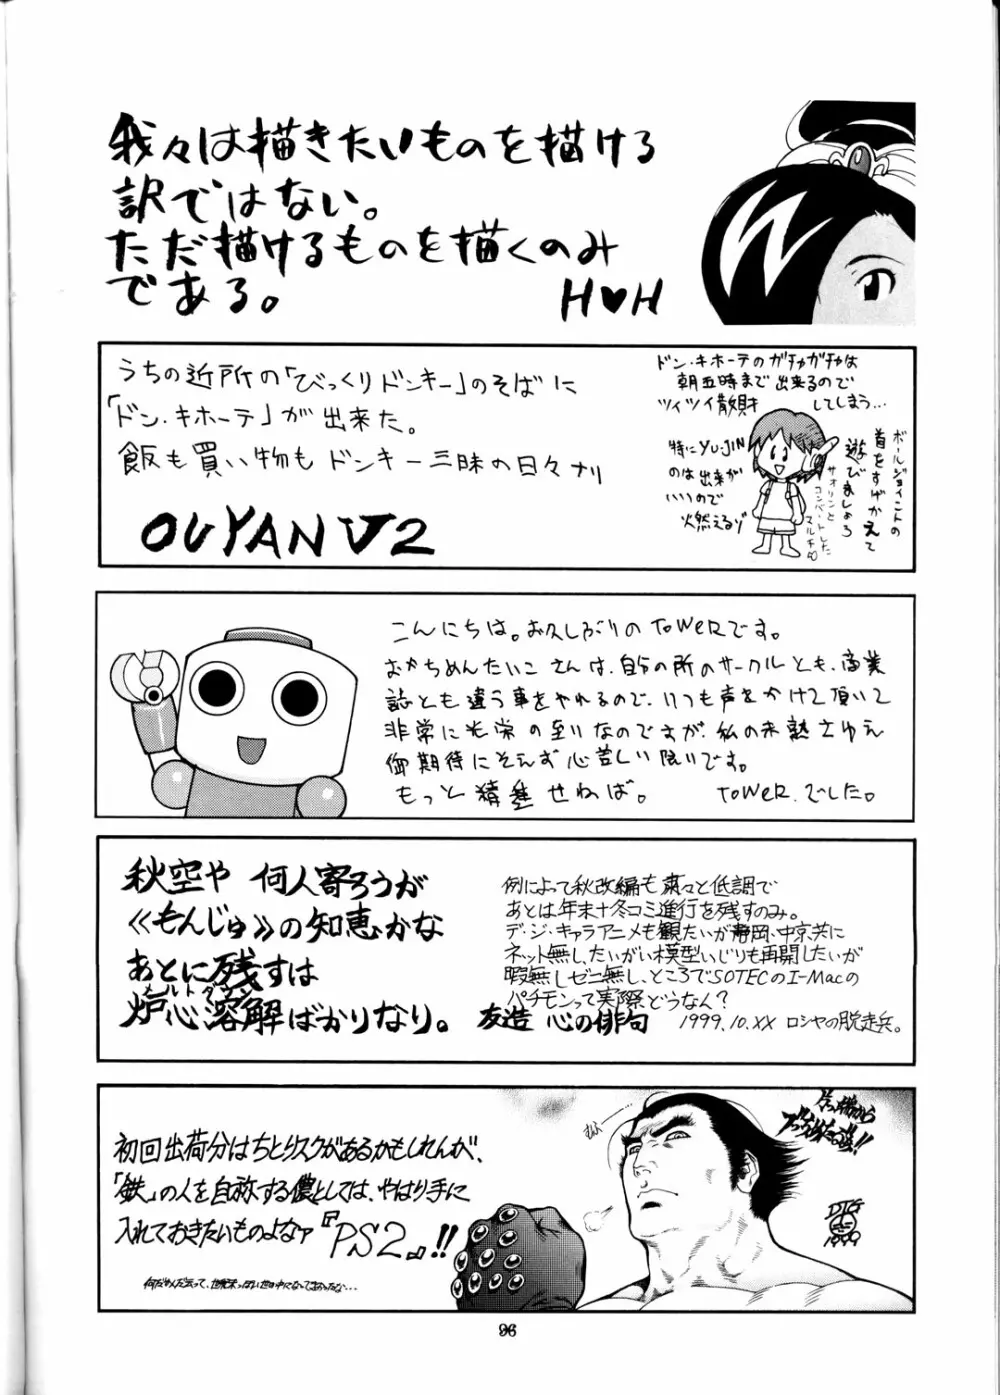 我々は描きたいものを描ける
訳ではない。
ただ描けるものを描くのみ
である。
H♥H
うちの近所の「びっくりドンキー」のそばに
「ドン・キホーテ」が出来た。
飯も買い物もドンキー三昧の日々ナリ
OUYANU2
ドン・キホーテのガチャガチャは
朝五時まで出来るので
ツイツイ散財してしまう…
特にYUJIN
のは出来が
いいので
火燃えるゾ
ボールジョイントの
首をすげかえて
遊びましょう
サオリンと
コンバートした
マルチ
こんにちは。お久しぶりのToWeRです。
おかちめんたいこさんは、自分の所のサークルとも、商業
誌とも違う事をやれるので、いつも声をかけて頂いて
非常に光栄の至りなのですが、私の未熟さゆえ
御期待にそえず心苦しい限りです。
もっと精進せねば。 ToWeR.でした。
秋空や 何人寄ろうが
≪もんじゅ≫の知恵かな
あとに残すは
メルトダウン
炉心溶解ばかりなり。 友造 心の俳句
例によって秋改編も粛々と低調で
あとは年末+冬コミ進行を残すのみ。
デ・ジ・キャラアニメも観たいが静岡、中京共に
ネット無し、たいがい模型いじりも再開したいが
暇無しゼニ無し、ところでSOTECのI-Macの
パチモンって実際どうなん?
1999.10.XX ロシヤの脱走兵。
初回出荷分はちとリスクがあるかもしれんが、
「鉄」の人を自称する儂としては、やはり手に
入れておきたいものよなァ『PS2』!!
DTG
1999
96